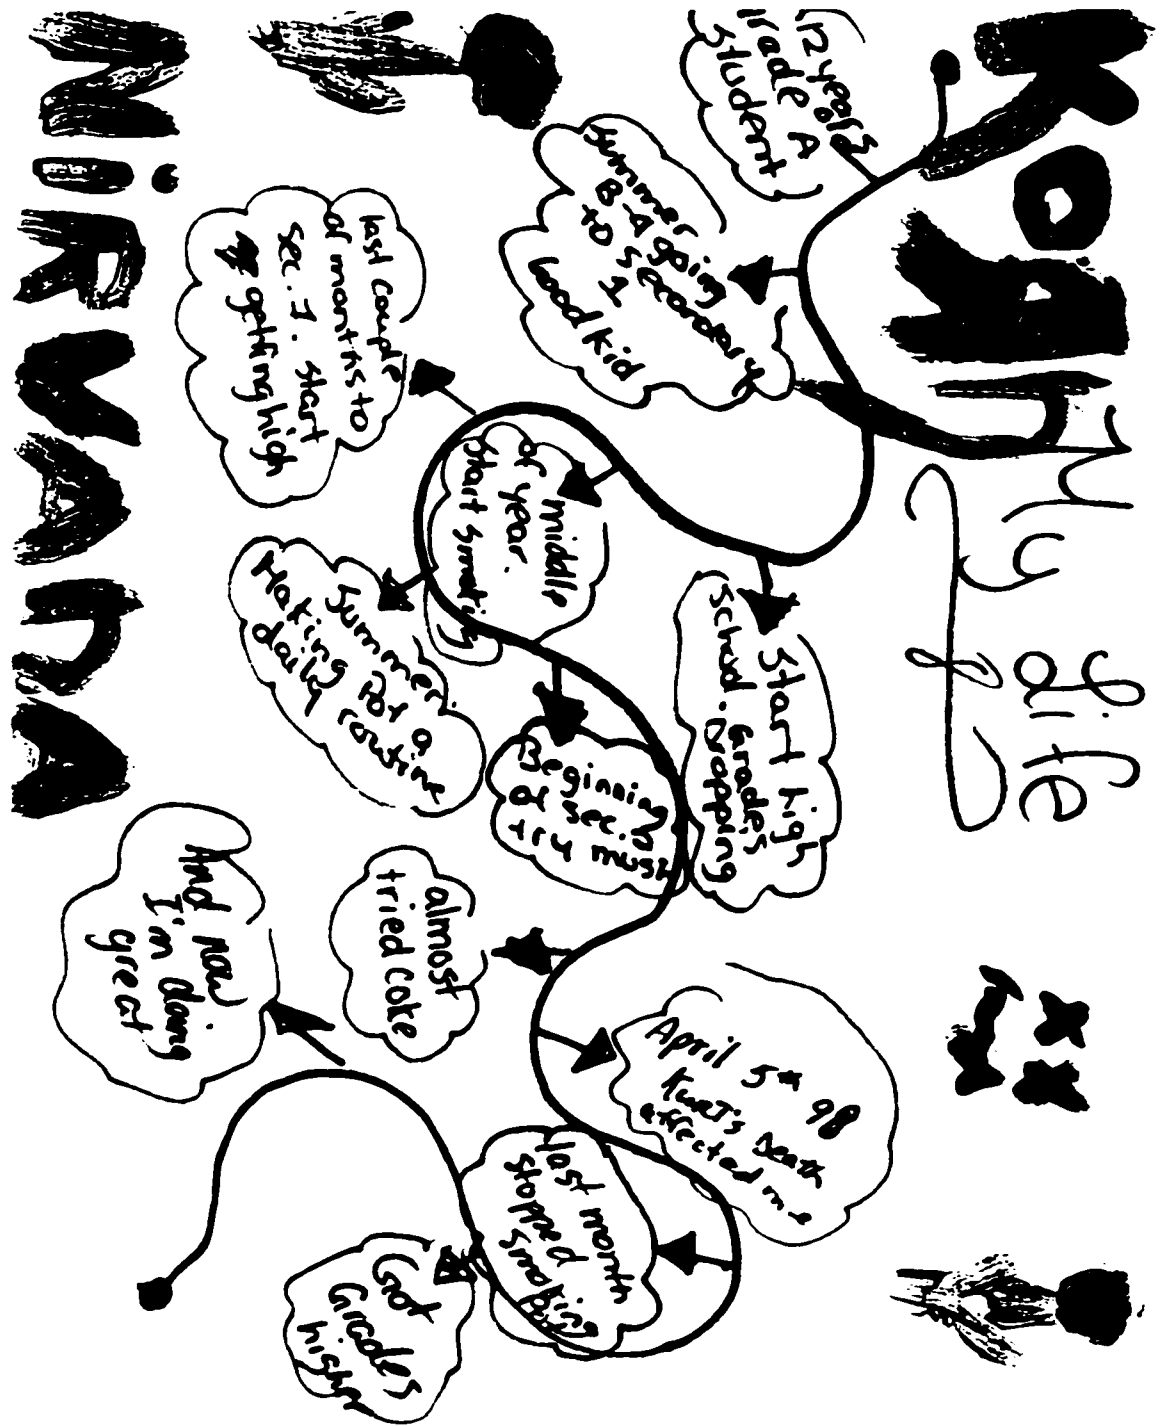 KoRn
My Life
12 years
grade A
student
Summer
B-4 going
to secondary
1
Good kid
Start high
school. Grades
Dropping
middle
of year.
Start smoking
last couple
of months to
sec. 1. start
getting high
Summer.
Making Pot a
daily routine
Beginning
of sec. 2
try mush
almost
tried coke
April 5th 98
Kurt's Death
affected me
last month
stopped
smoking
Pot
Got
Grades
higher
And now
I'm doing
great
NiRVAnA